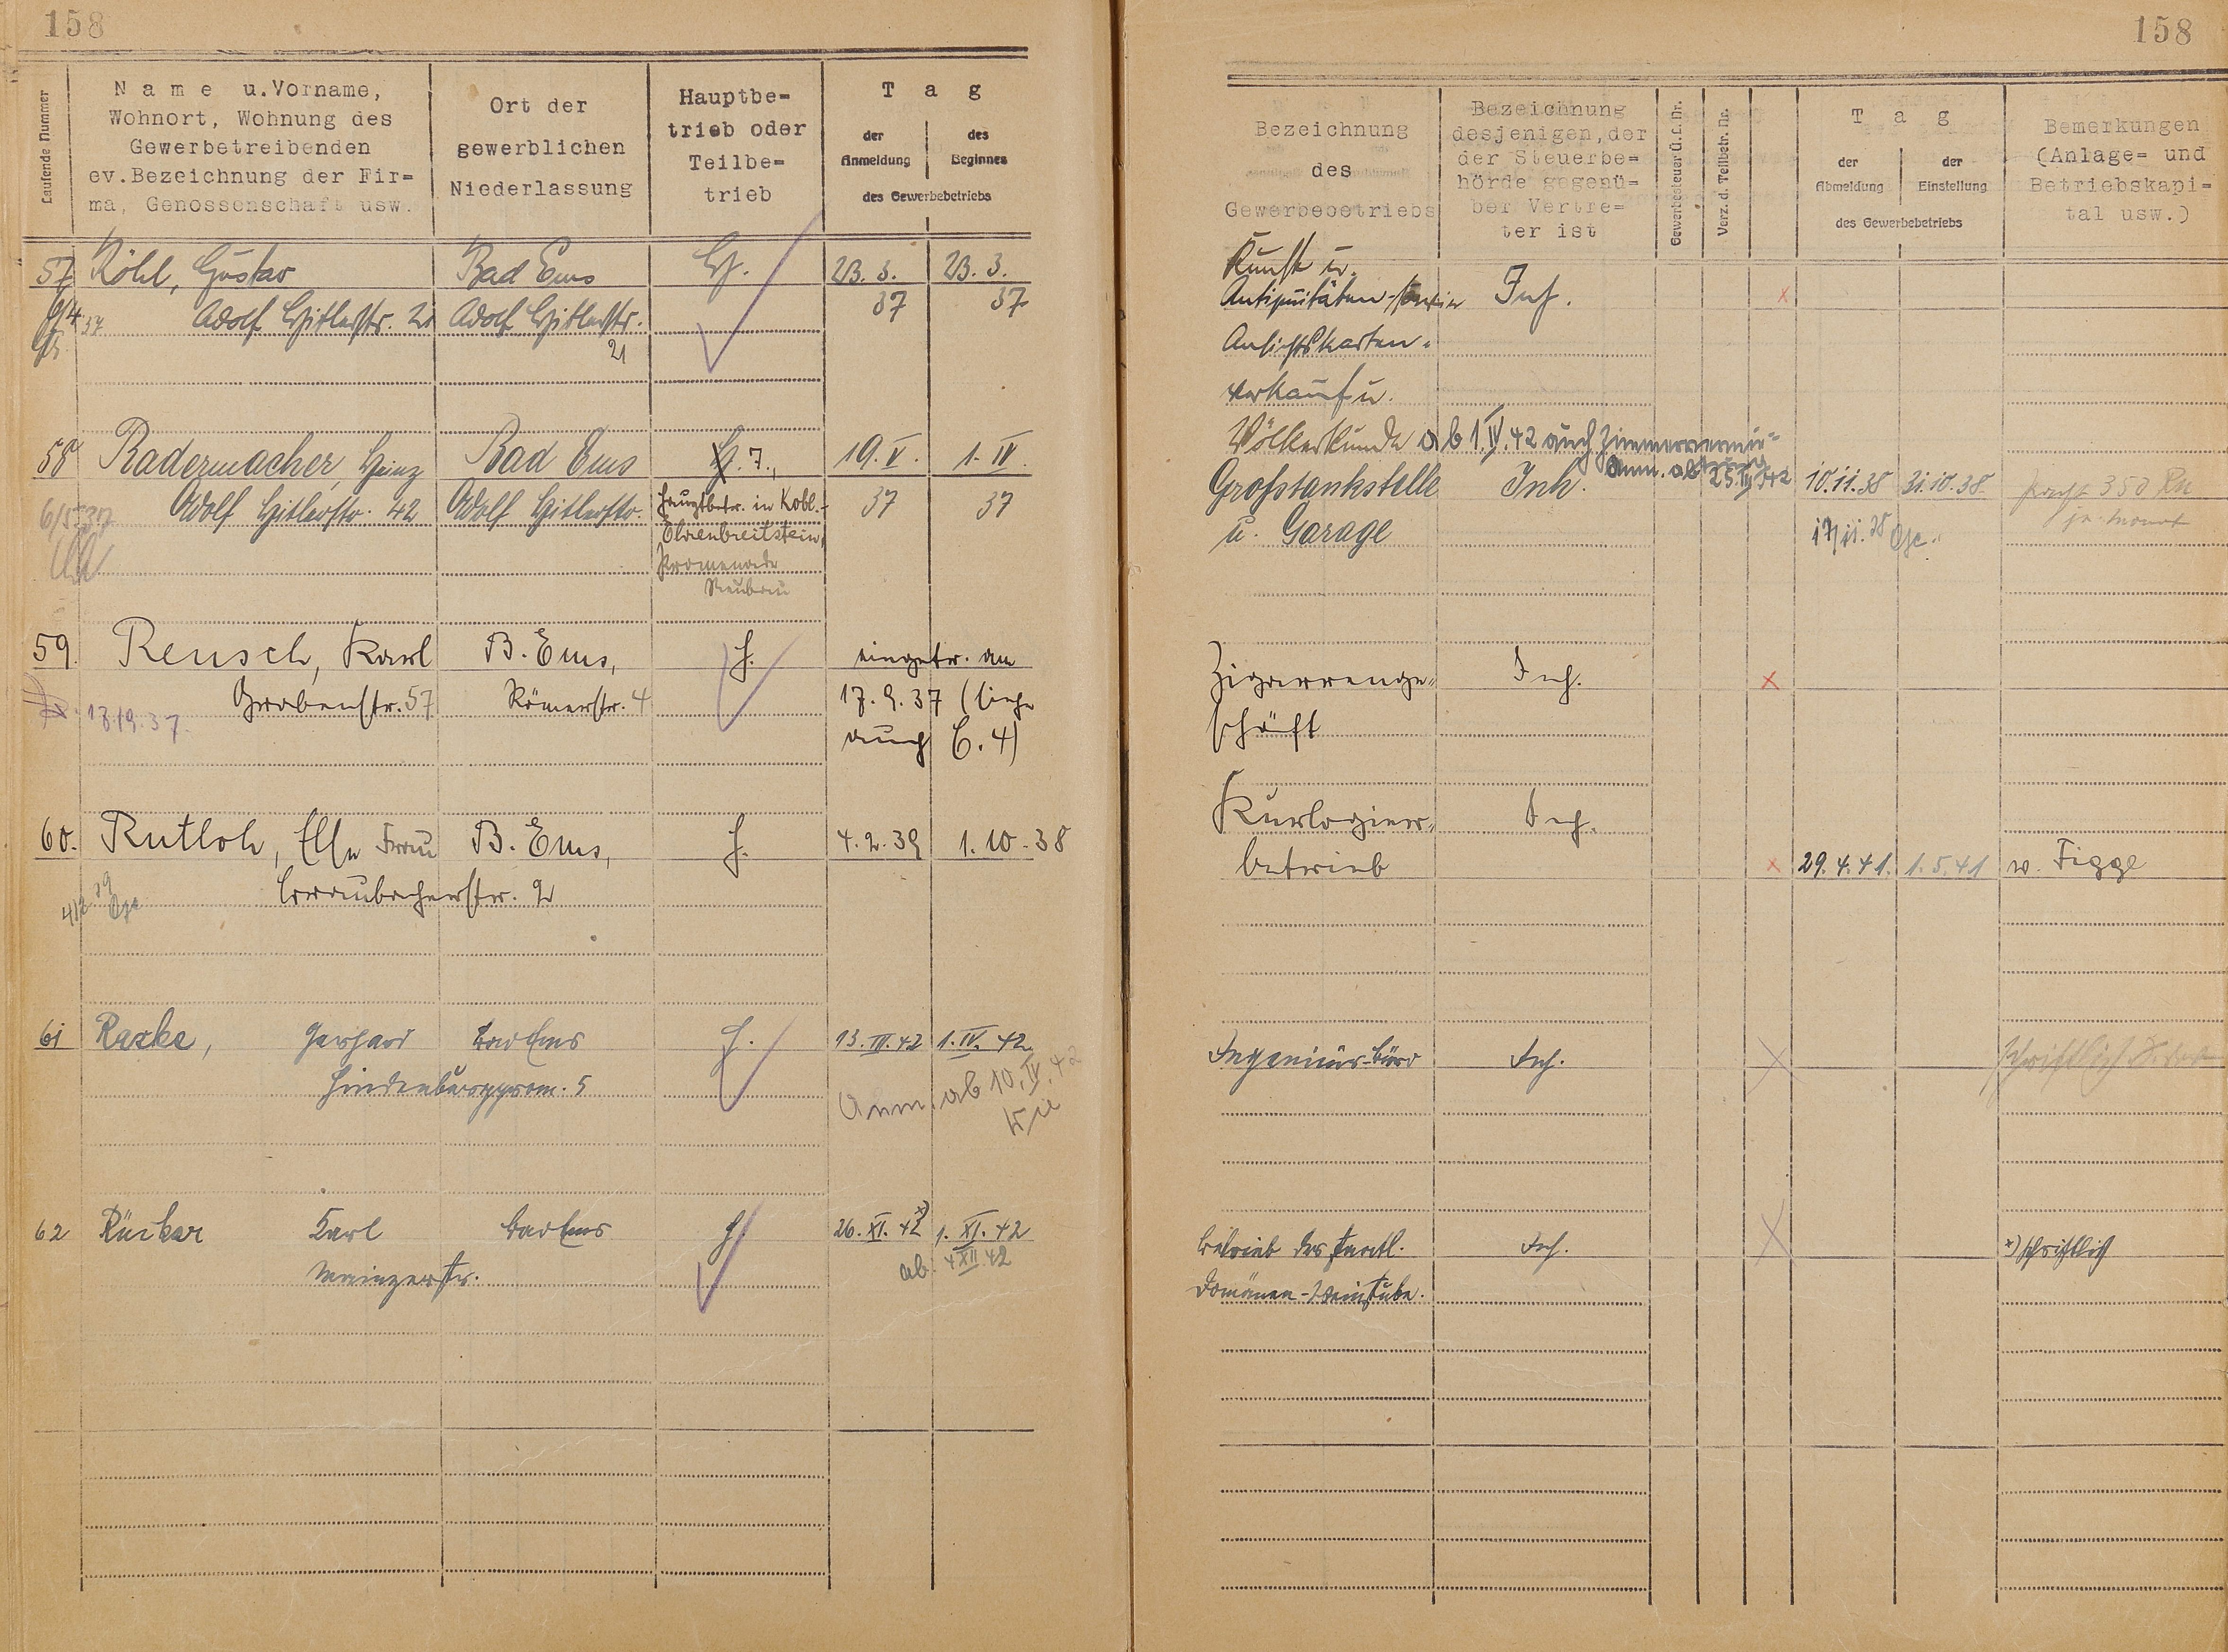 158
Laufende Nummer
Name u.Vorname,
Wohnort, Wohnung des
Gewerbetreibenden
ev.Bezeichnung der Fir=
ma, Genossenschaft usw.
Ort der
gewerblichen
Niederlassung
Hauptbe=
trieb oder
Teilbe=
trieb
Tag
der
Anmeldung
des
Beginnes
des Gewerbebetriebs
57 Röhl, Gustav Bad Ems H. 23. 3. 23. 3.
Adolf Hitlerstr. 21 Adolf Hitlerstr. 37 37
21
58 Radermacher, Heinz Bad Ems 19. V. 1. IV.
Adolf Hitlerstr. 42 Adolf Hitlerstr. Hauptbetr. in Kobl.- 37 37
6/5 37
Ehrenbreitstein,
Promenade
Neubau
59. Reusch, Karl B. Ems, H. eingetr. am
Grabenstr. 57 Römerstr. 4 17. 9. 37 (siehe
17/9. 37. auch C. 4)
60. Rutloh, Else Frau B. Ems, H. 4. 2. 39 1. 10. 38
Braubacherstr. 2
4/2. 39
61 Raske, Gerhard Bad Ems H. 13. III. 42 1. IV. 42
Hindenburgprom. 5
Anm. ab 10. IV. 42
62 Rücker Karl Bad Ems H. 26. XI. 42 x) 1. XI. 42
Mainzerstr. ab. 4 XII 42
158
Bezeichnung
des
Gewerbebetriebs
Bezeichnung
desjenigen, der
der Steuerbe=
hörde gegenü=
ber Vertre=
ter ist
Gewerbesteuer Ü. L. Nr.
Verz. d. Teilbetr. Nr.
Tag
der
Abmeldung
der
Einstellung
des Gewerbebetriebs
Bemerkungen
(Anlage= und
Betriebskapi=
tal usw.)
Kunst u.
Antiquitäten- Inh. x
Ansichtskarten-
verkauf u.
Völkerkunde ab 1. IV. 42 auch Zimmervermie=
Anm. ab
Großtankstelle Inh. 10. 11. 38 31. 10. 38 Pacht 350 RM
u. Garage 17/11. 38 je Monat
Zigarrenge= Inh. x
schäft
Kurlogier= Inh.
betrieb x 29. 4. 41. 1. 5. 41 w. Figge
Ingenieur-Büro Inh. x schriftlich
Betrieb der staatl. Inh. x x) schriftlich
Domänen-Weinstube.